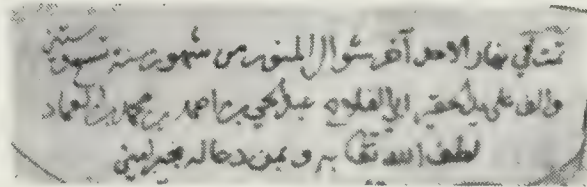 في نهار الاحد آخر شوال المنور من شهور سنة
والف على يد الفقير ابي الفلاح عبد الحي بن احمد بن محمد ابن العماد
لطف الله تعا به وبمن دعا له بخير امين